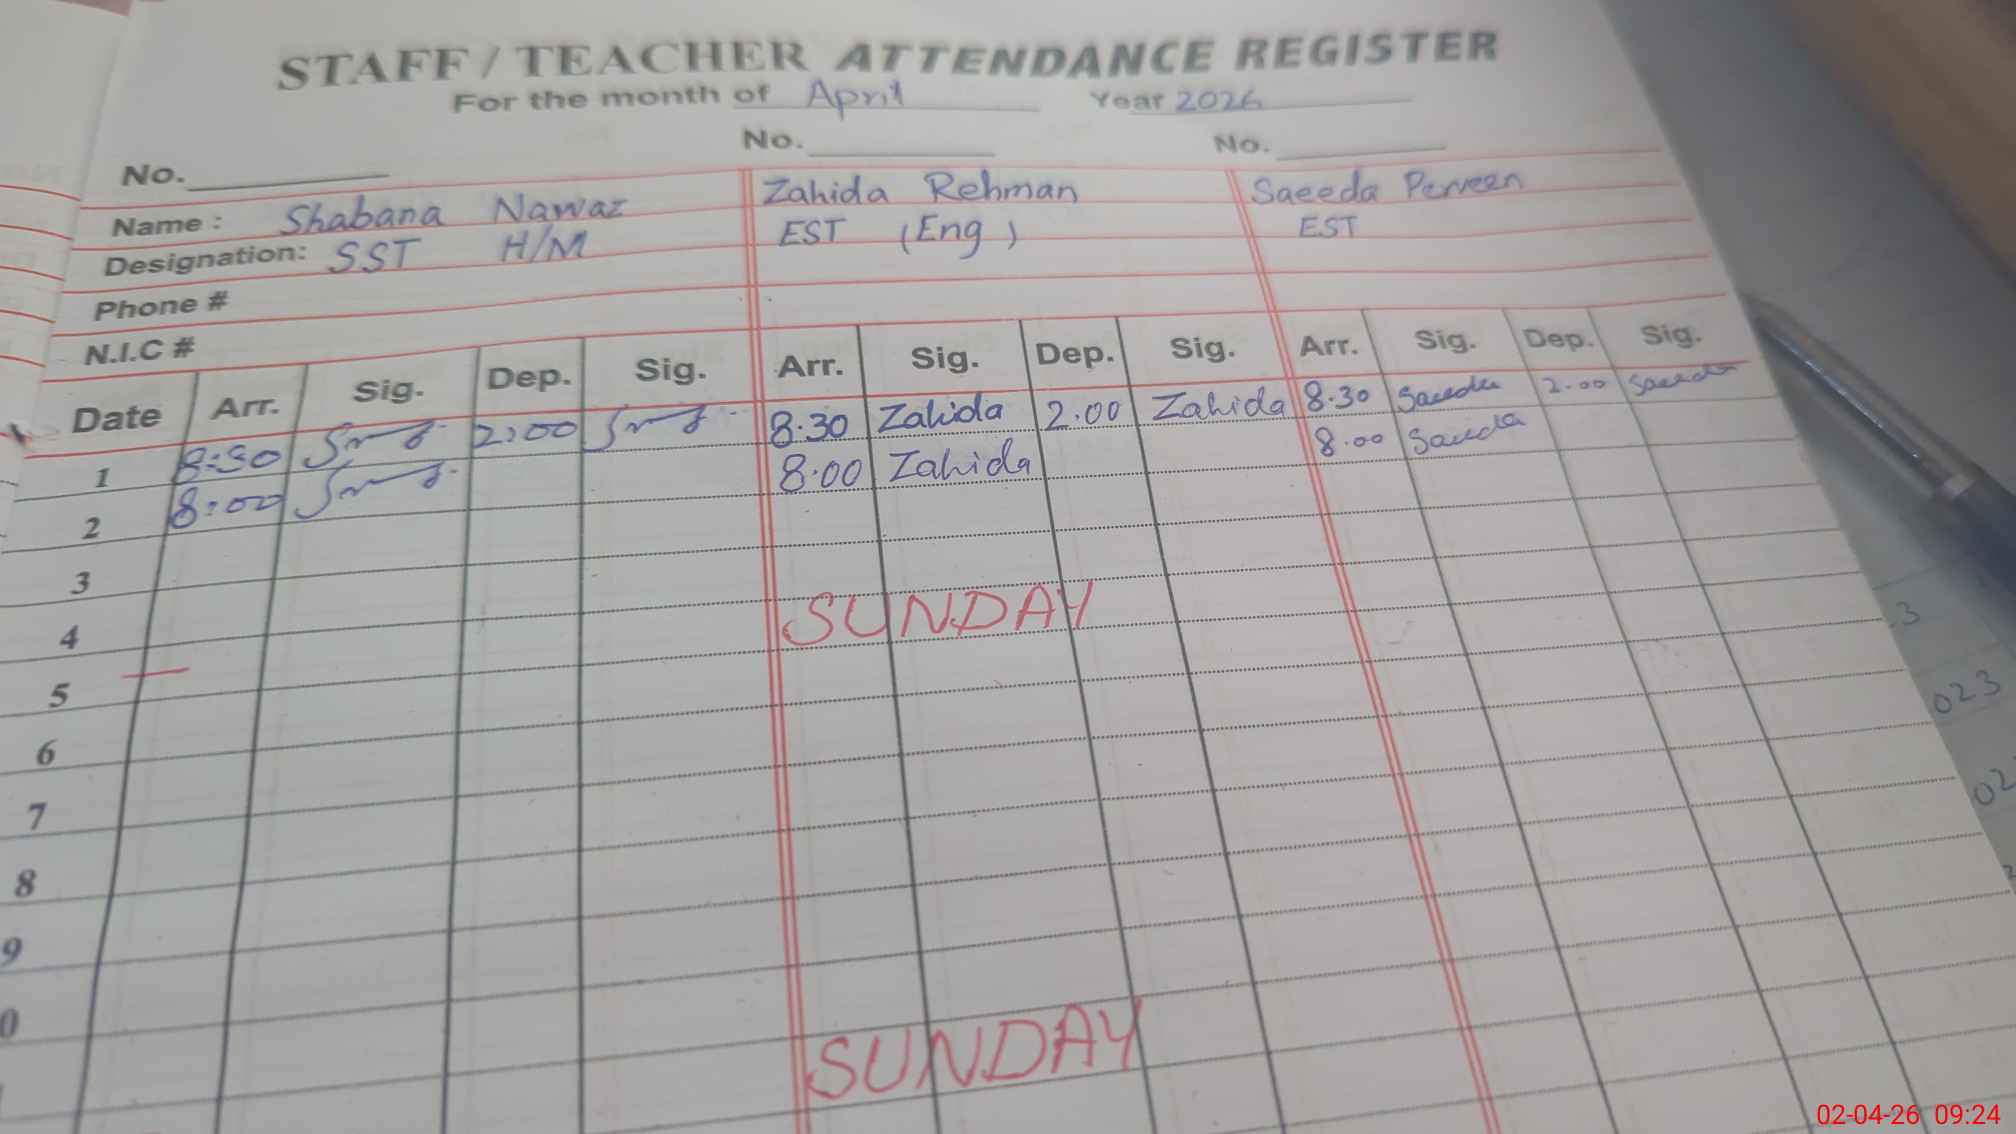 STAFF / TEACHER ATTENDANCE REGISTER
For the month of April Year 2026
No. No. No.
Name : Shabana Nawaz Zahida Rehman Saeeda Perveen
Designation: SST H/M EST (Eng) EST
Phone #
N.I.C #
Date Arr. Sig. Dep. Sig. Arr. Sig. Dep. Sig. Arr. Sig. Dep. Sig.
1 8:30 2:00 8.30 Zahida 2.00 Zahida 8.30 Saeeda 2.00 Saeeda
2 8:00 8.00 Zahida 8.00 Saeeda
3
4
5 SUNDAY
6
7
8
9
0
SUNDAY
3
023
02
02-04-26 09:24